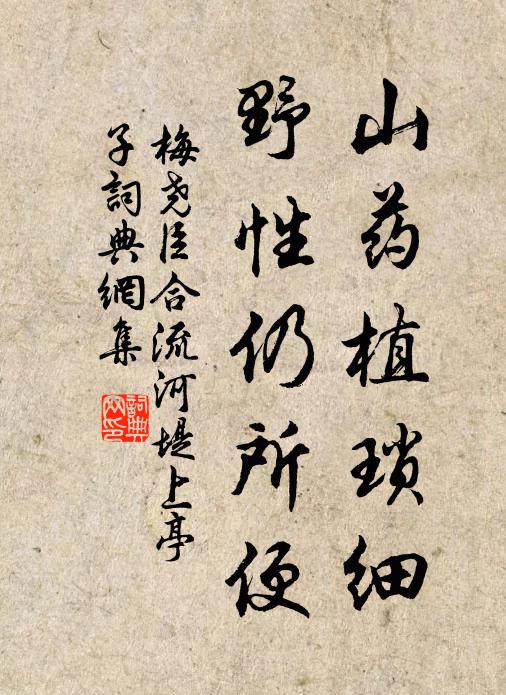 山药植琐细
野性仍所便
梅尧臣合流河堤上亭
子詞典網集
詞典
网印